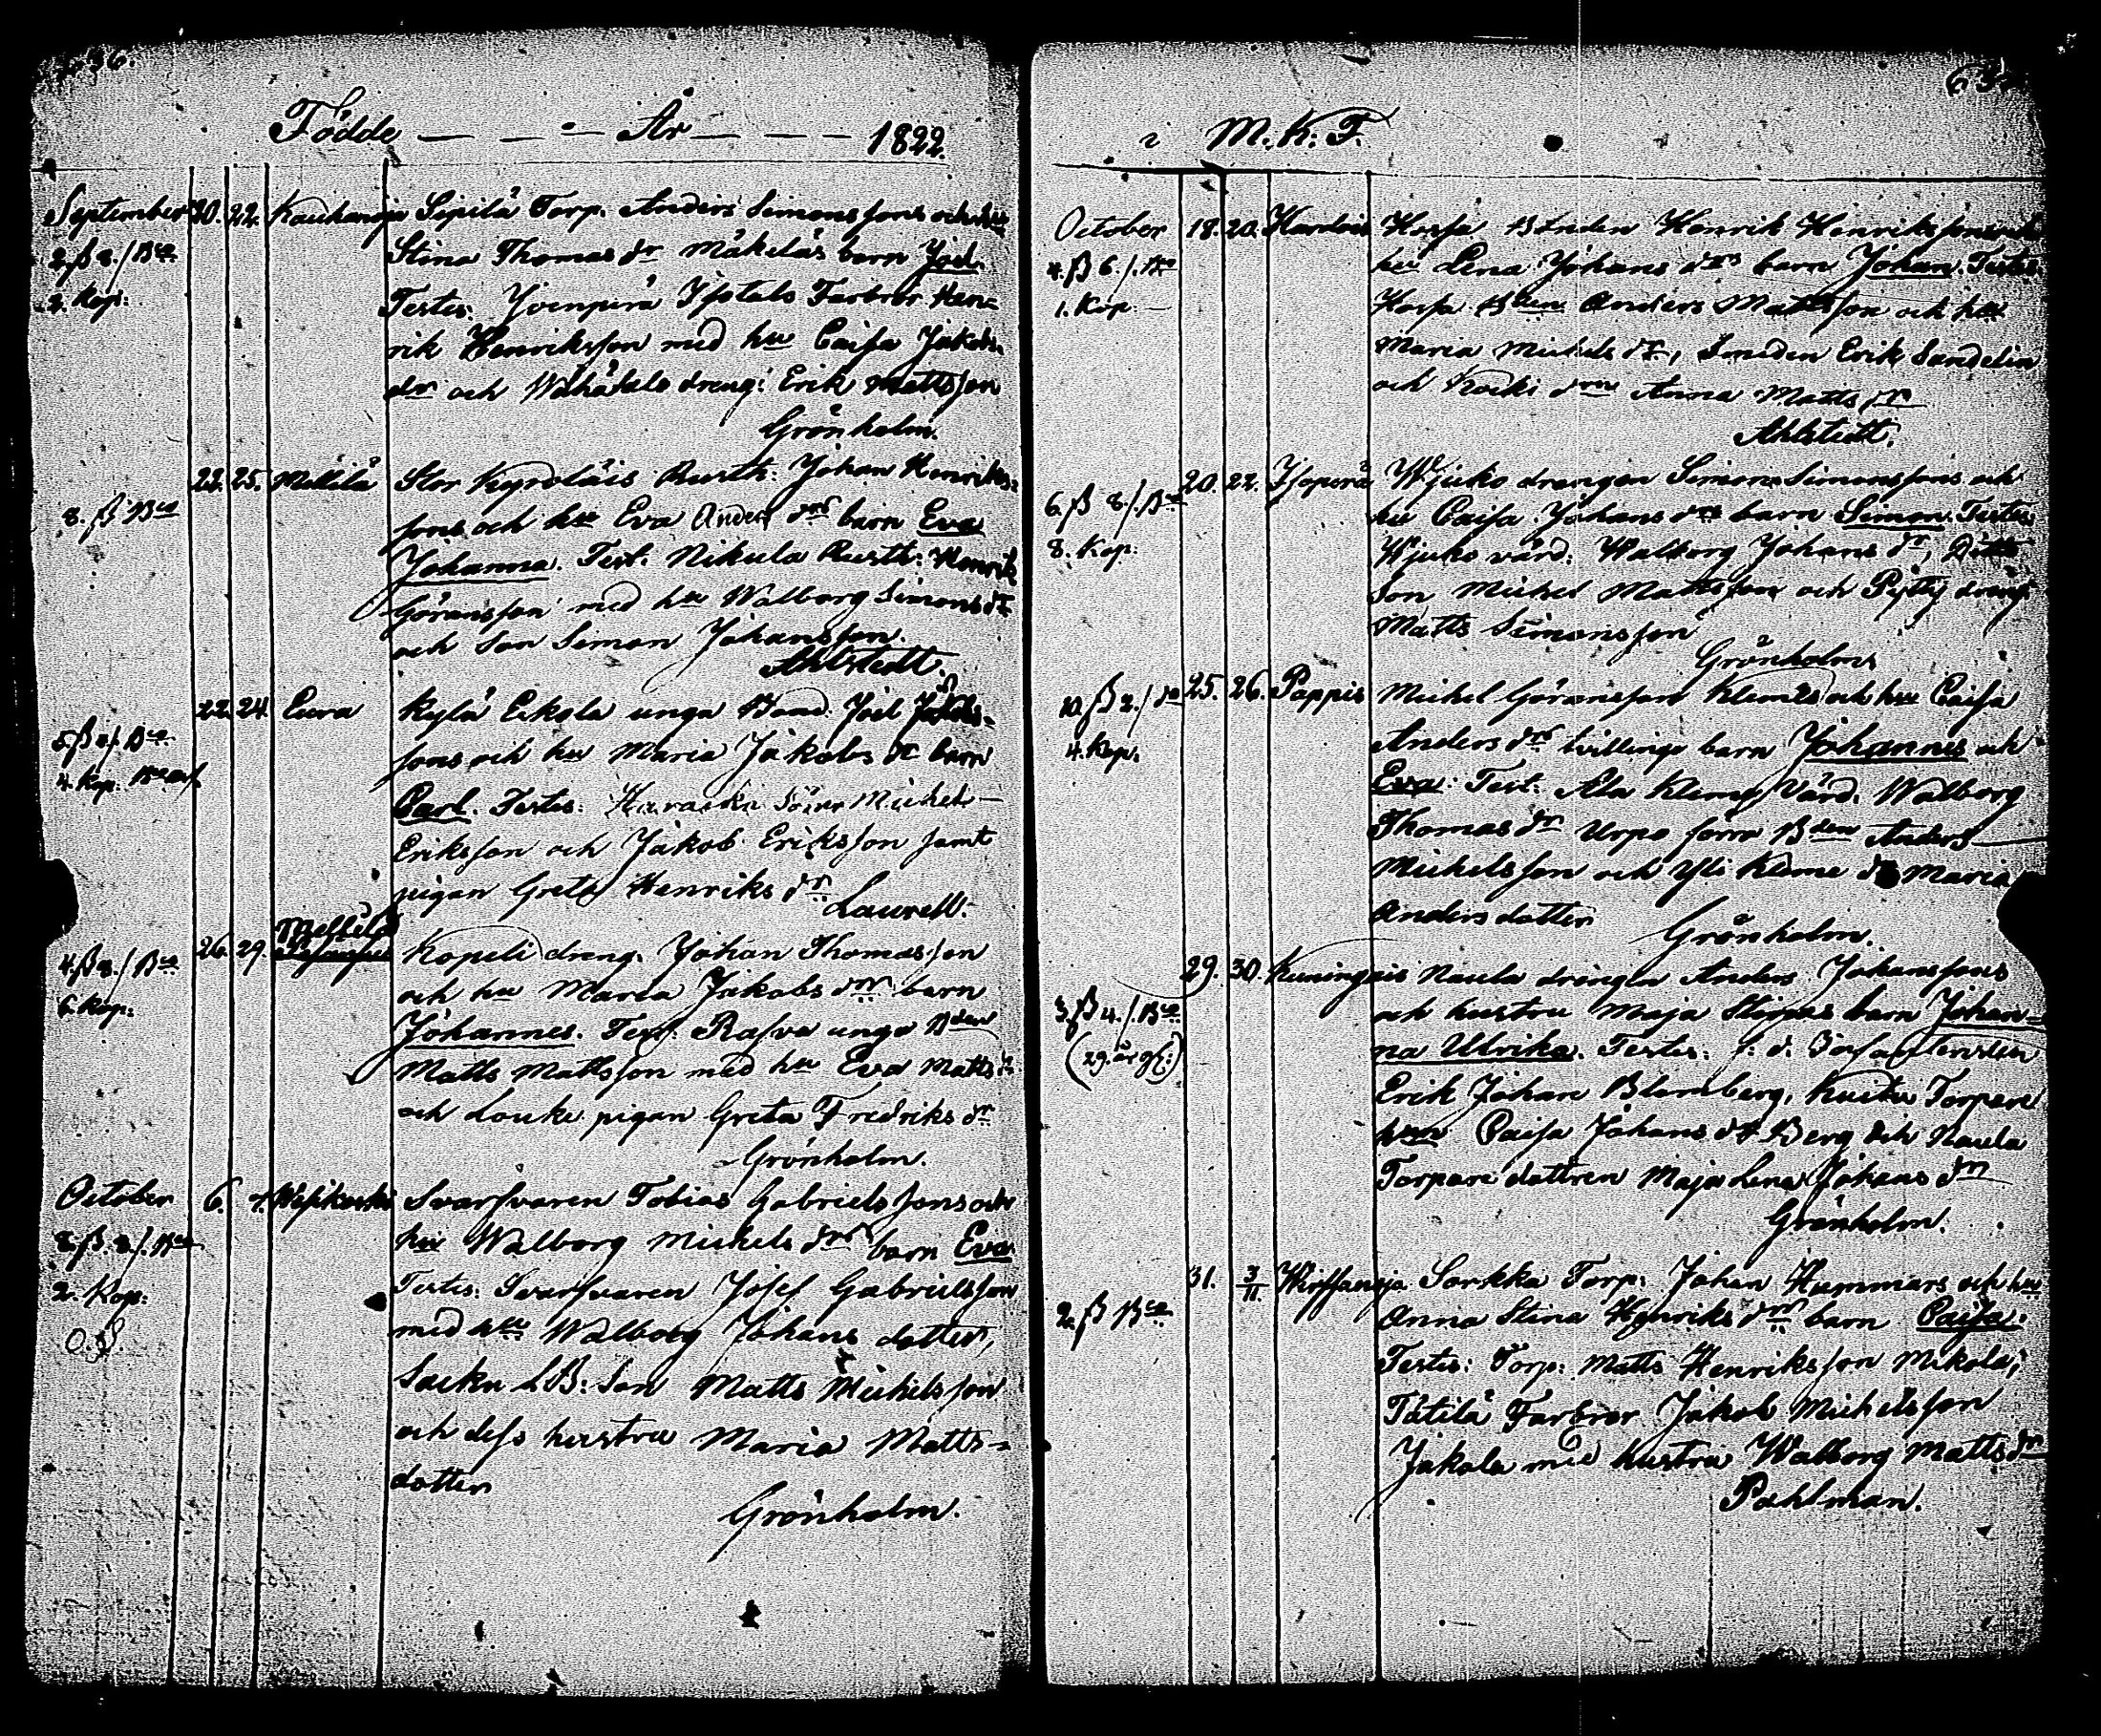 Födde — — År — — — 1822.
September 20. 22. Kauhanoja Sepilä Torp. Anders Simonssons och hu
2 ß 8./. Bco Stina Thomas dr Mäkeläs barn Joel.
2. Kop: Testes: Yvenperä Ystals Farbror Hen-
rik Henriksson med hu Caisa Jakobs
dr och Wähätalo dreng: Erik Mattsson
Grönholm.
22. 25. Mellilä Stor Kyroläis Rusth: Johan Henriks-
8. ß Bco sons och hu Eva Anders drs barn Eva
Johanna. Test: Nikula Rusth: Henrik
Göransson med hu Walborg Simons dr
och Son Simon Johansson.
Ahlstedt.
22. 24. Eura Kylä Eskola unga Bond. Joel Jakobs-
sons och hu Maria Jakobs dr barn
4. Kop: Carl. Testes: Michel
Eriksson och Jakob Eriksson samt
pigan Greta Henriks dr
Laurell.
Mellilä
4. ß 8./. Bco 26. 29. Kapeli dreng. Johan Thomasson
6. Kop: och hu Maria Jakobs drs barn
Johannes. Test: Rasva unga Bden
Matts Mattsson med hu Eva Matts dr
och Louke pigan Greta Fredriks dr
Grönholm.
October 6. 7. Wesikoski Svarfvaren Tobias Gabrielssons och
8. ß. 8./. Bco hu Walborg Michels drs barn Eva
2. Kop: Testes: Svarfvaren Josef Gabrielsson
med hu Walborg Johans dotter,
Son Matts Michelsson
och dess hustru Maria Matts-
dotter
Grönholm.
i M. K: F.
October 18. 20. Karvois Horsa Bonden Henrik Henrikssons och
4. ß 6./. Bco hu Lena Johans drs barn Johan. Testes
1. Kop: Horsa Bden Anders Mattsson och hu
Maria Michels dr, Smeden Erik Sandelin
och Kocki drn Anna Matts dr
Ahlstedt.
20. 22. Isoperä Wjuko drengen Simon Simonssons och
6. ß 8./. Bco hu Caisa Johans drs barn Simon. Testes
8. Kop: Wjuko värd: Walborg Johans dr,
Son Michel Mattsson och Pytty dreng
Matts Simonsson
Grönholm
10. ß 2./. 25. 26. Pappis Michel Göransson Klemes och hu Caisa
4. Kop. Anders drs tvillinge barn Johannes och
Eva: Test: Ala Kleme Värd. Walborg
Thomas dr Urpo förra Bden Anders
Michelsson och Yli Kleme dr Maria
Anders dotter
Grönholm.
29. 30. Kuningais Naula drengen Anders Johanssons
3. ß 4./. Bco och hustru Maja Stinas barn Johan-
(29. år gl:) na Ulrika. Testes: f. d.
Erik Johan Blomberg, Torpare
hun Caisa Johans dr Berg och Naula
Torpare dottren Maja Lena Johans dr
Grönholm.
31. 3/11 Wirssanoja Sarkka Torp: Johan Hammars och hu
2. ß Bco Anna Stina Henriks drs barn Caisa.
Testes: Torp: Matts Henriksson Mikola,
Tätilä Farbror Jakob Michelsson
Jakola med hustru Walborg Matts dr
Pahlman.